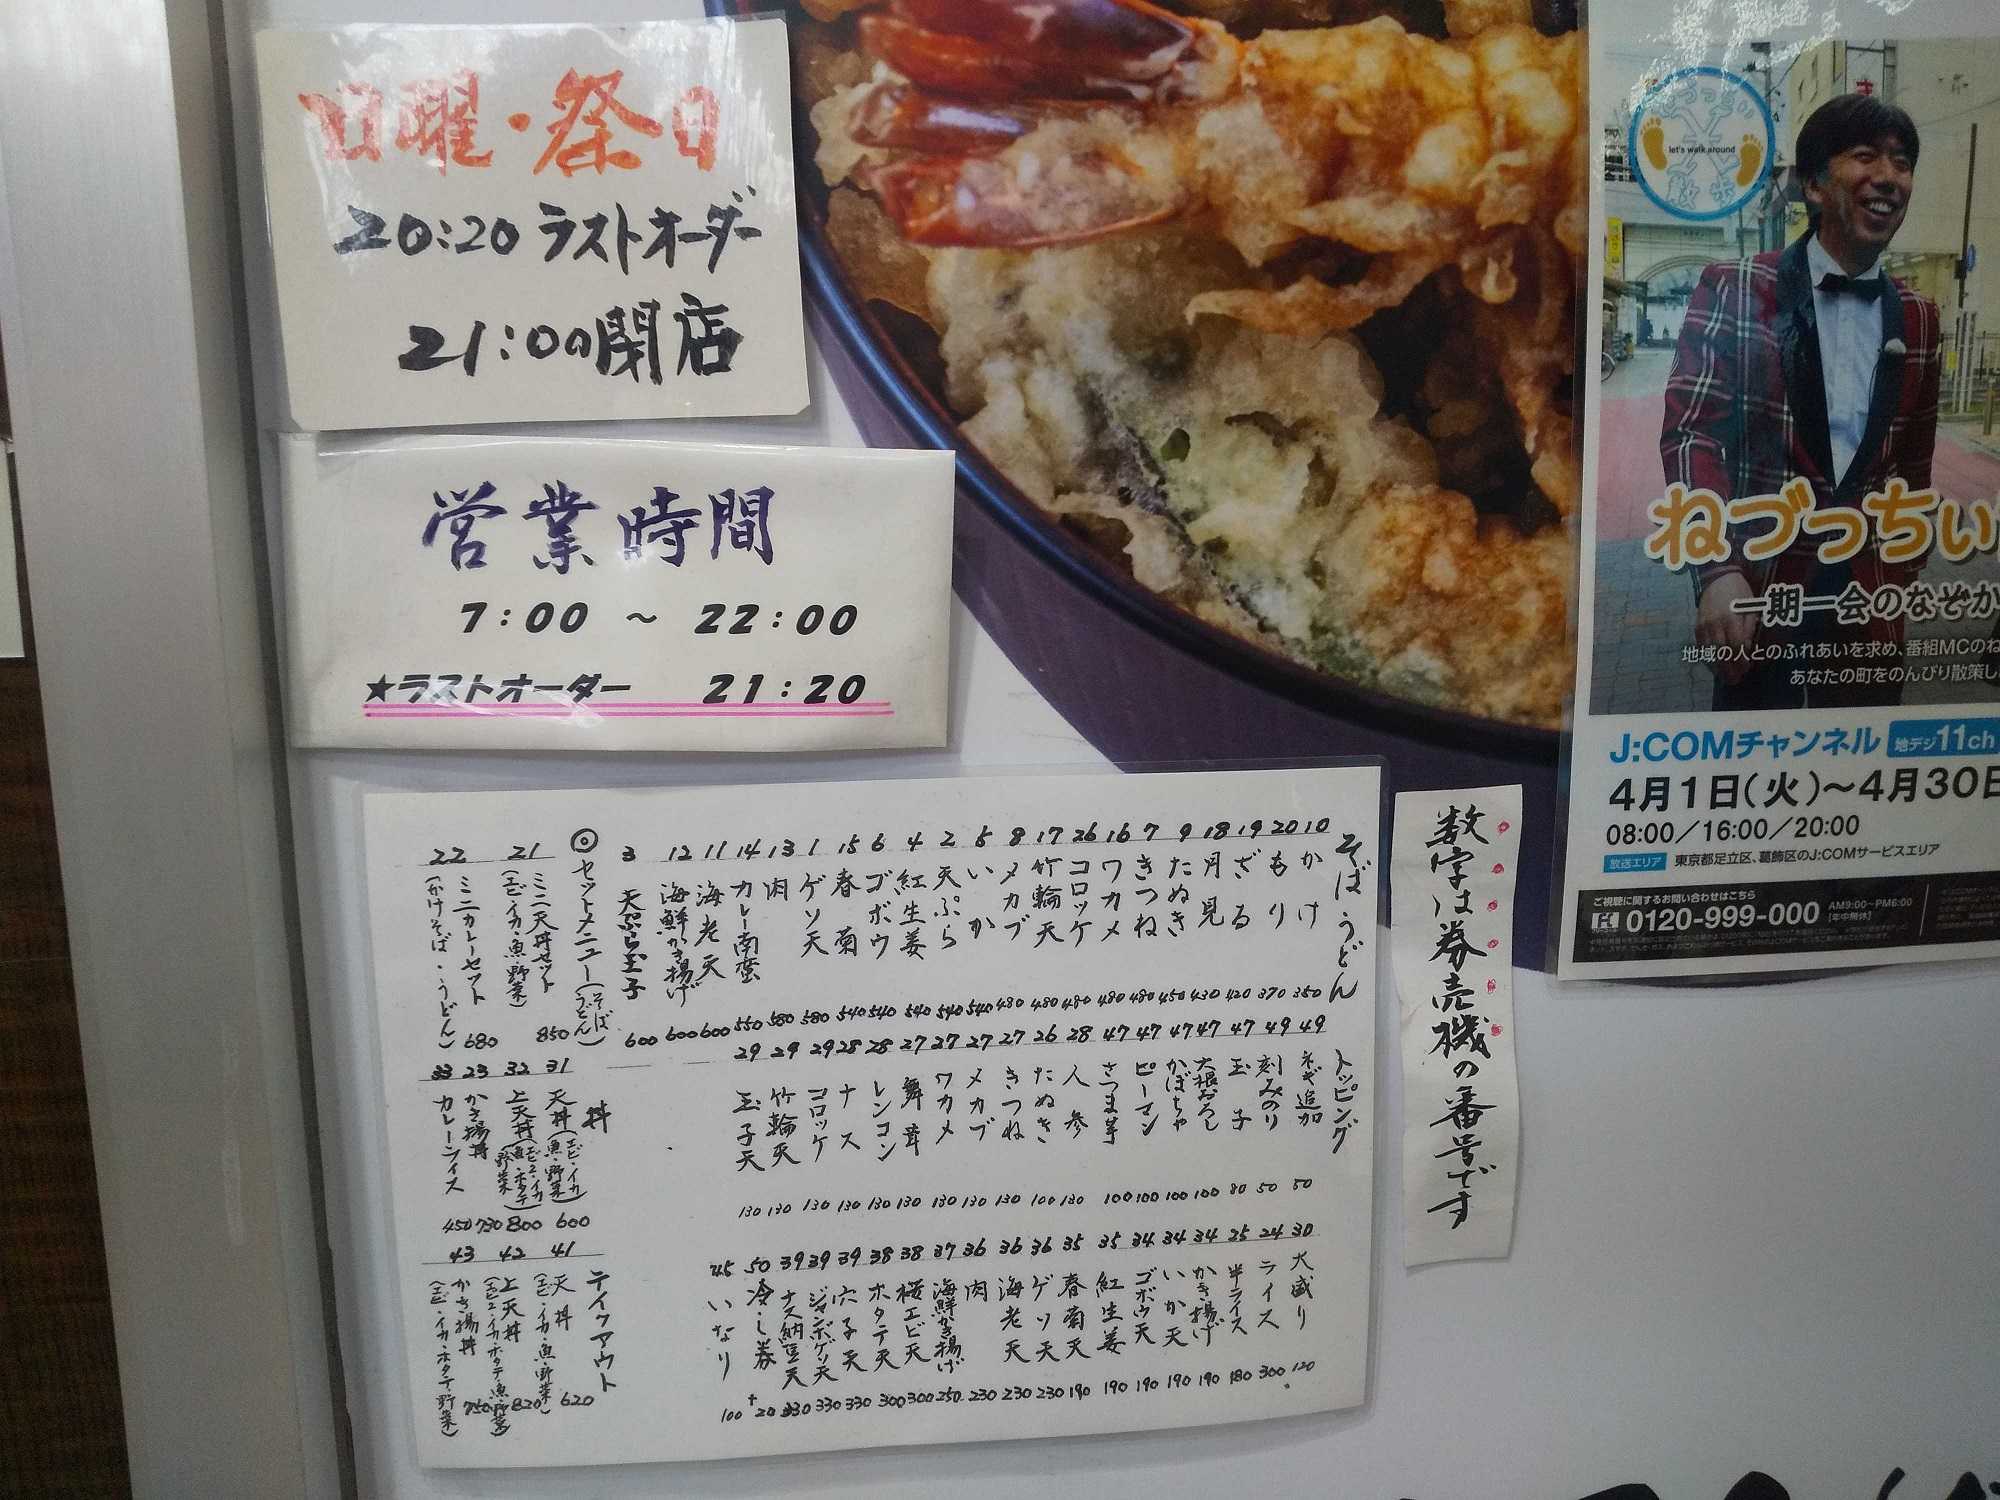 日曜・祭日
20:20 ラストオーダー
21:00閉店
営業時間
7:00 ～ 22:00
★ラストオーダー 21:20
そばうどん
10 かけ 350
20 もり 370
19 ざる 420
18 月見 430
9 たぬき 450
7 きつね 480
16 ワカメ 480
26 コロッケ 480
17 竹輪天 480
8 メカブ 480
5 いか 540
2 天ぷら 540
4 紅生姜 540
6 ゴボウ 540
15 春菊 540
1 ゲソ天 580
13 肉 580
14 カレー南蛮 550
11 海老天 600
12 海鮮かき揚げ 600
3 天ぷら玉子 600
◎セットメニュー(そば・うどん)
21 ミニ天丼セット 850
(エビ・イカ・魚・野菜)
22 ミニカレーセット 680
(かけそば・うどん)
トッピング
49 ネギ追加 50
49 刻みのり 50
47 玉子 80
47 大根おろし 100
47 かぼちゃ 100
47 ピーマン 100
47 さつま芋 100
28 人参 130
26 たぬき 100
27 きつね 130
27 メカブ 130
27 ワカメ 130
27 舞茸 130
28 レンコン 130
28 ナス 130
29 コロッケ 130
29 竹輪天 130
29 玉子天 130
丼
31 天丼(エビ・イカ・魚・野菜) 600
32 上天丼(エビ2・イカ・魚・ホタテ・野菜) 800
23 かき揚丼 730
33 カレーライス 450
30 大盛り 120
24 ライス 300
25 半ライス 180
34 かき揚げ 190
34 いか天 190
34 ゴボウ天 190
35 紅生姜 190
35 春菊天 190
36 ゲソ天 230
36 海老天 230
36 肉 230
37 海鮮かき揚げ 250
38 桜エビ天 300
38 ホタテ天 300
39 穴子天 330
39 ジャンボゲソ天 330
39 ナス納豆天 330
50 冷し券 +20
45 いなり 100
テイクアウト
41 天丼 620
(エビ・イカ・魚・野菜)
42 上天丼 820
(エビ2・イカ・ホタテ・魚・野菜)
43 かき揚丼 750
(エビ・イカ・ホタテ・野菜)
数字は券売機の番号です
let's walk around
散歩
ねづっちぃ
一期一会のなぞか
地域の人とのふれあいを求め、番組MCのね
あなたの町をのんびり散策し
J:COMチャンネル 地デジ11ch
4月1日(火)～4月30日
08:00／16:00／20:00
放送エリア 東京都足立区、葛飾区のJ:COMサービスエリア
ご視聴に関するお問い合わせはこちら
0120-999-000 AM9:00～PM6:00
[年中無休]